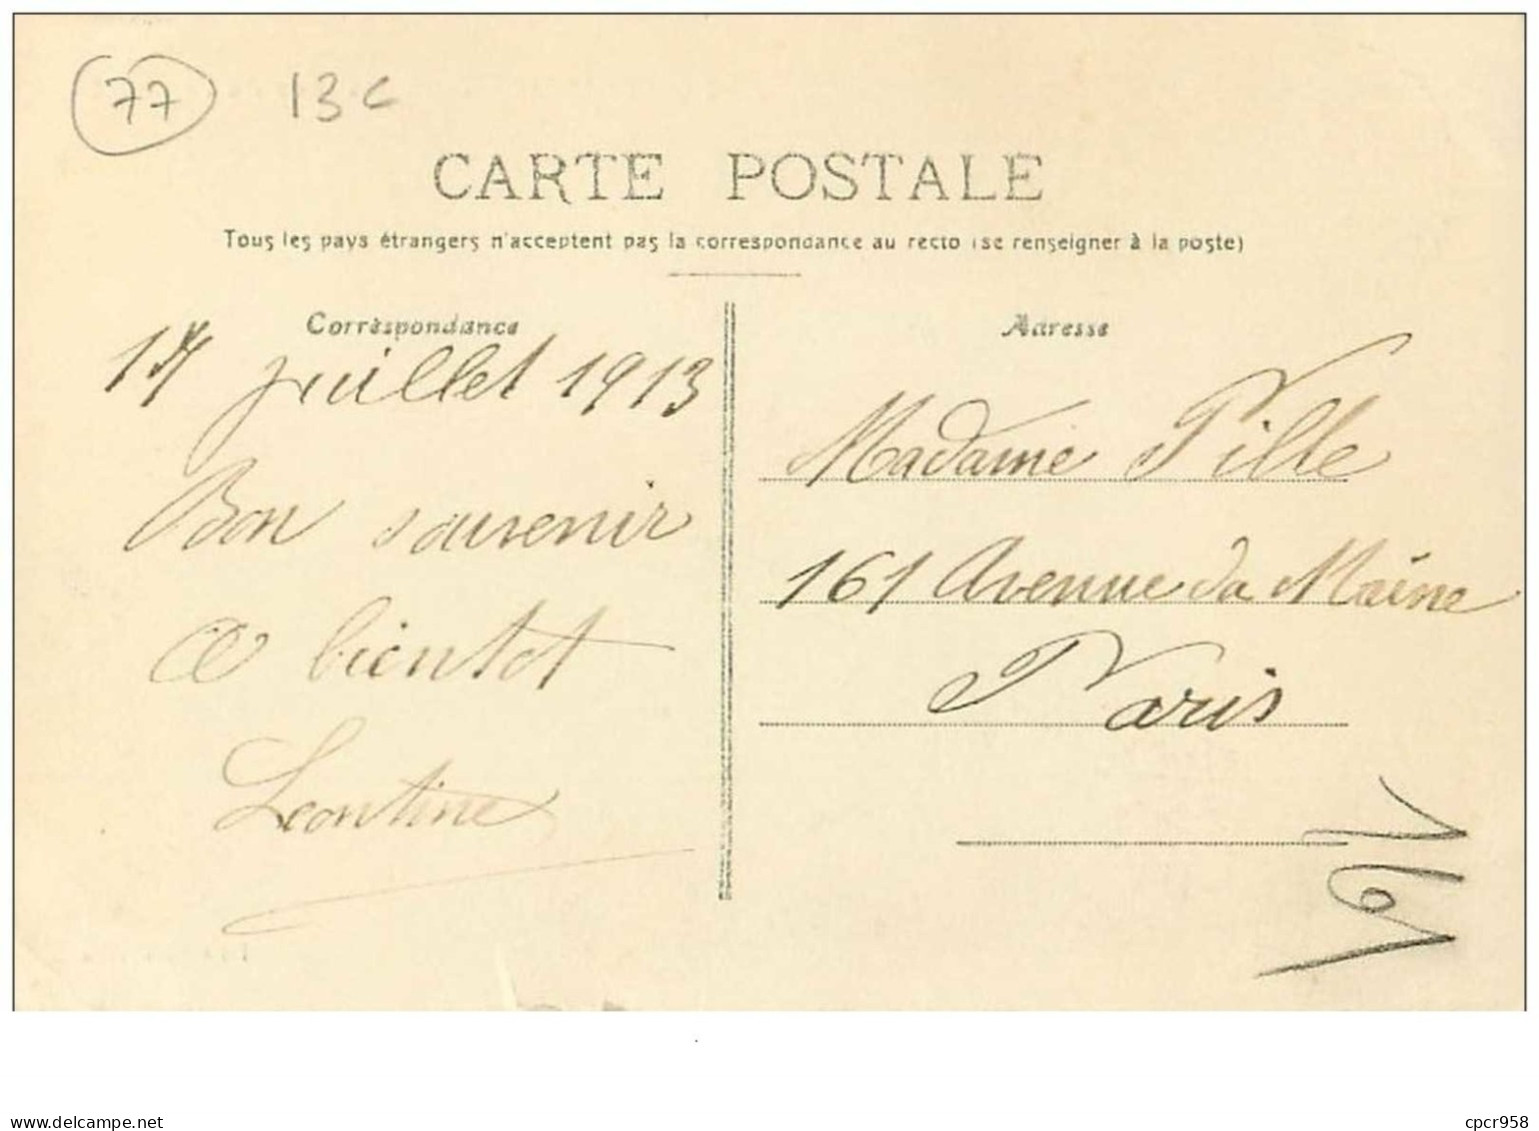 77 13 c
CARTE POSTALE
Tous les pays étrangers n'acceptent pas la correspondance au recto (se renseigner à la poste)
Correspondance
juillet 1913
Bon souvenir
a bientot
Leontine
Adresse
Madame Pille
161 Avenue du Maine
Paris
161
delcampe.net
cpcr958